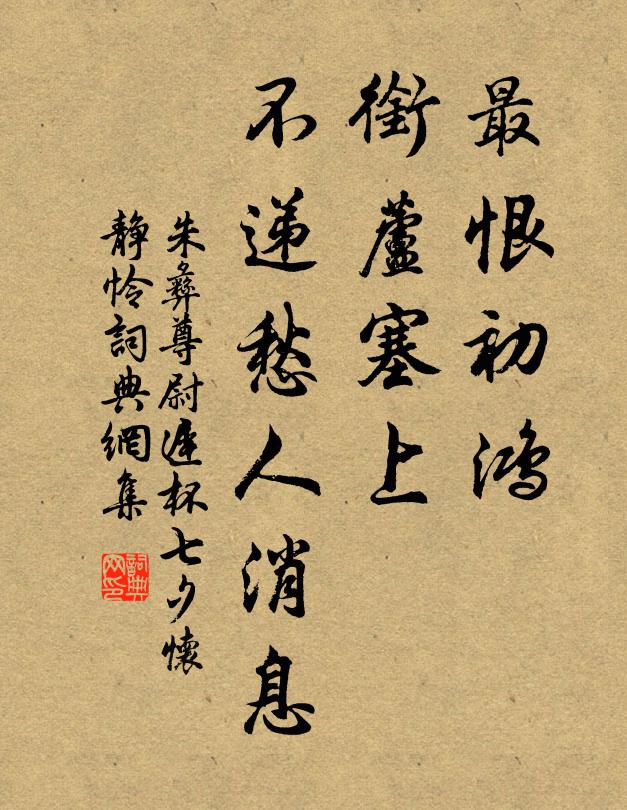 最恨初鸿
銜蘆塞上
不递愁人消息
朱彝尊尉遲杯七夕懷
靜怜詞典網集
詞典网印